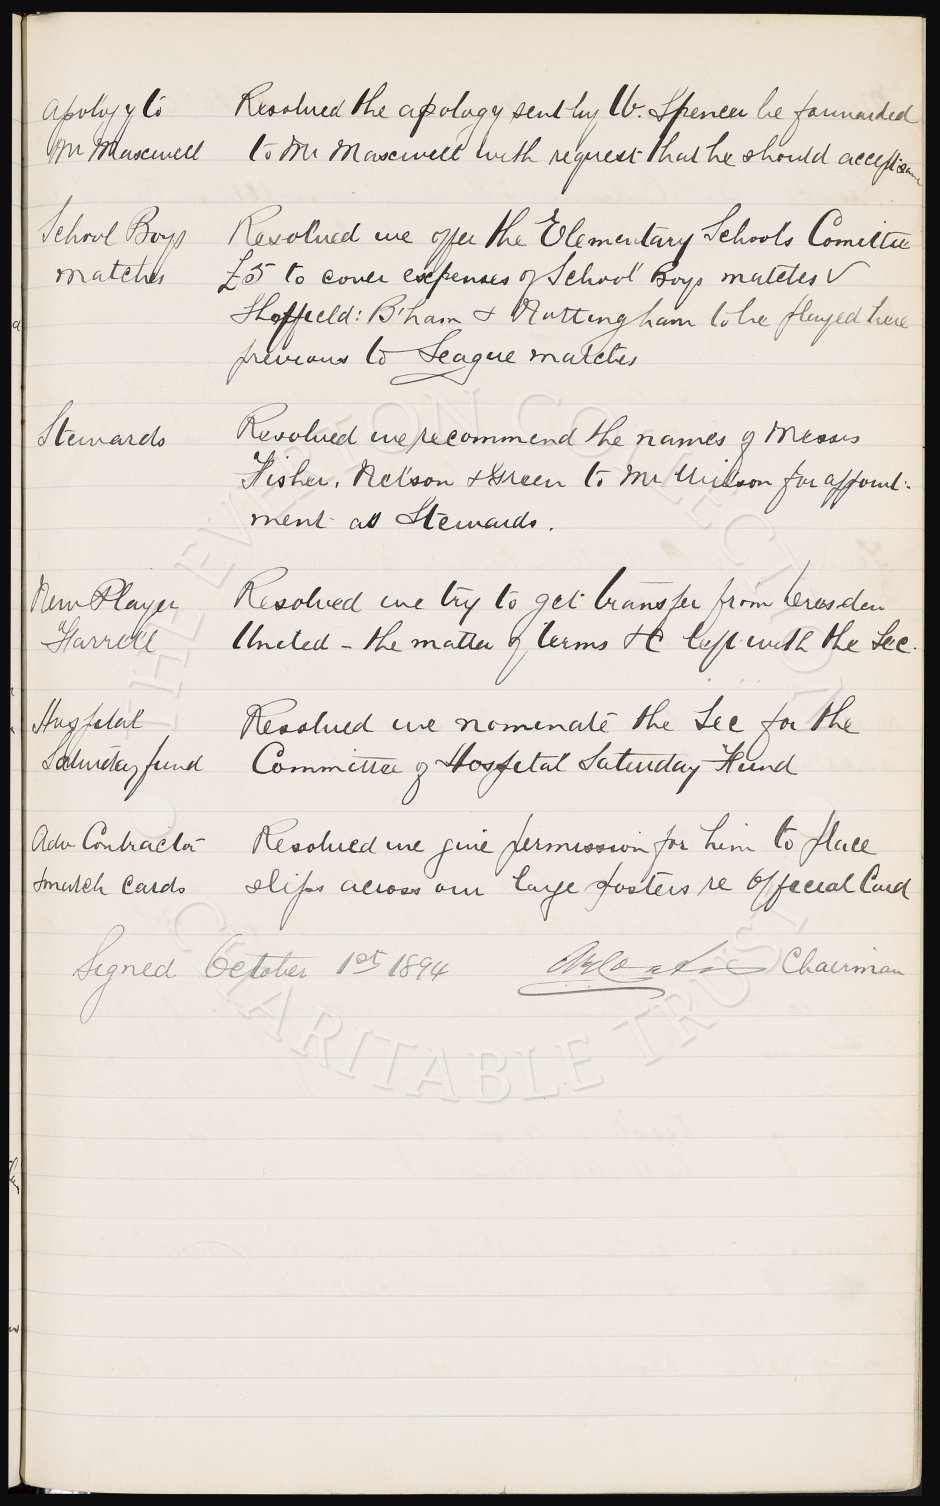 Apology to Resolved the apology sent by W. Spencer be forwarded
Mr Maxwell to Mr Maxwell with request that he should accept same
School Boys Resolved we offer the Elementary Schools Comittee
matches £5 to cover expenses of School Boys matches v
Sheffield: B'ham & Nottingham to be played here
previous to League matches
Stewards Resolved we recommend the names of Messrs
Fisher, Nelson & Green to Mr Wilson for appoint-
ment as Stewards.
New Player Resolved we try to get transfer from Dresden
Farrell United - the matter of terms &c left with the Sec.
Hospital Resolved we nominate the Sec for the
Saturday fund Committee of Hospital Saturday Fund
Adv Contractor Resolved we give permission for him to place
& match cards slips across our large posters re Official Card
Signed October 1st 1894 Chairman
THE EVERTON COLLECTION
CHARITABLE TRUST